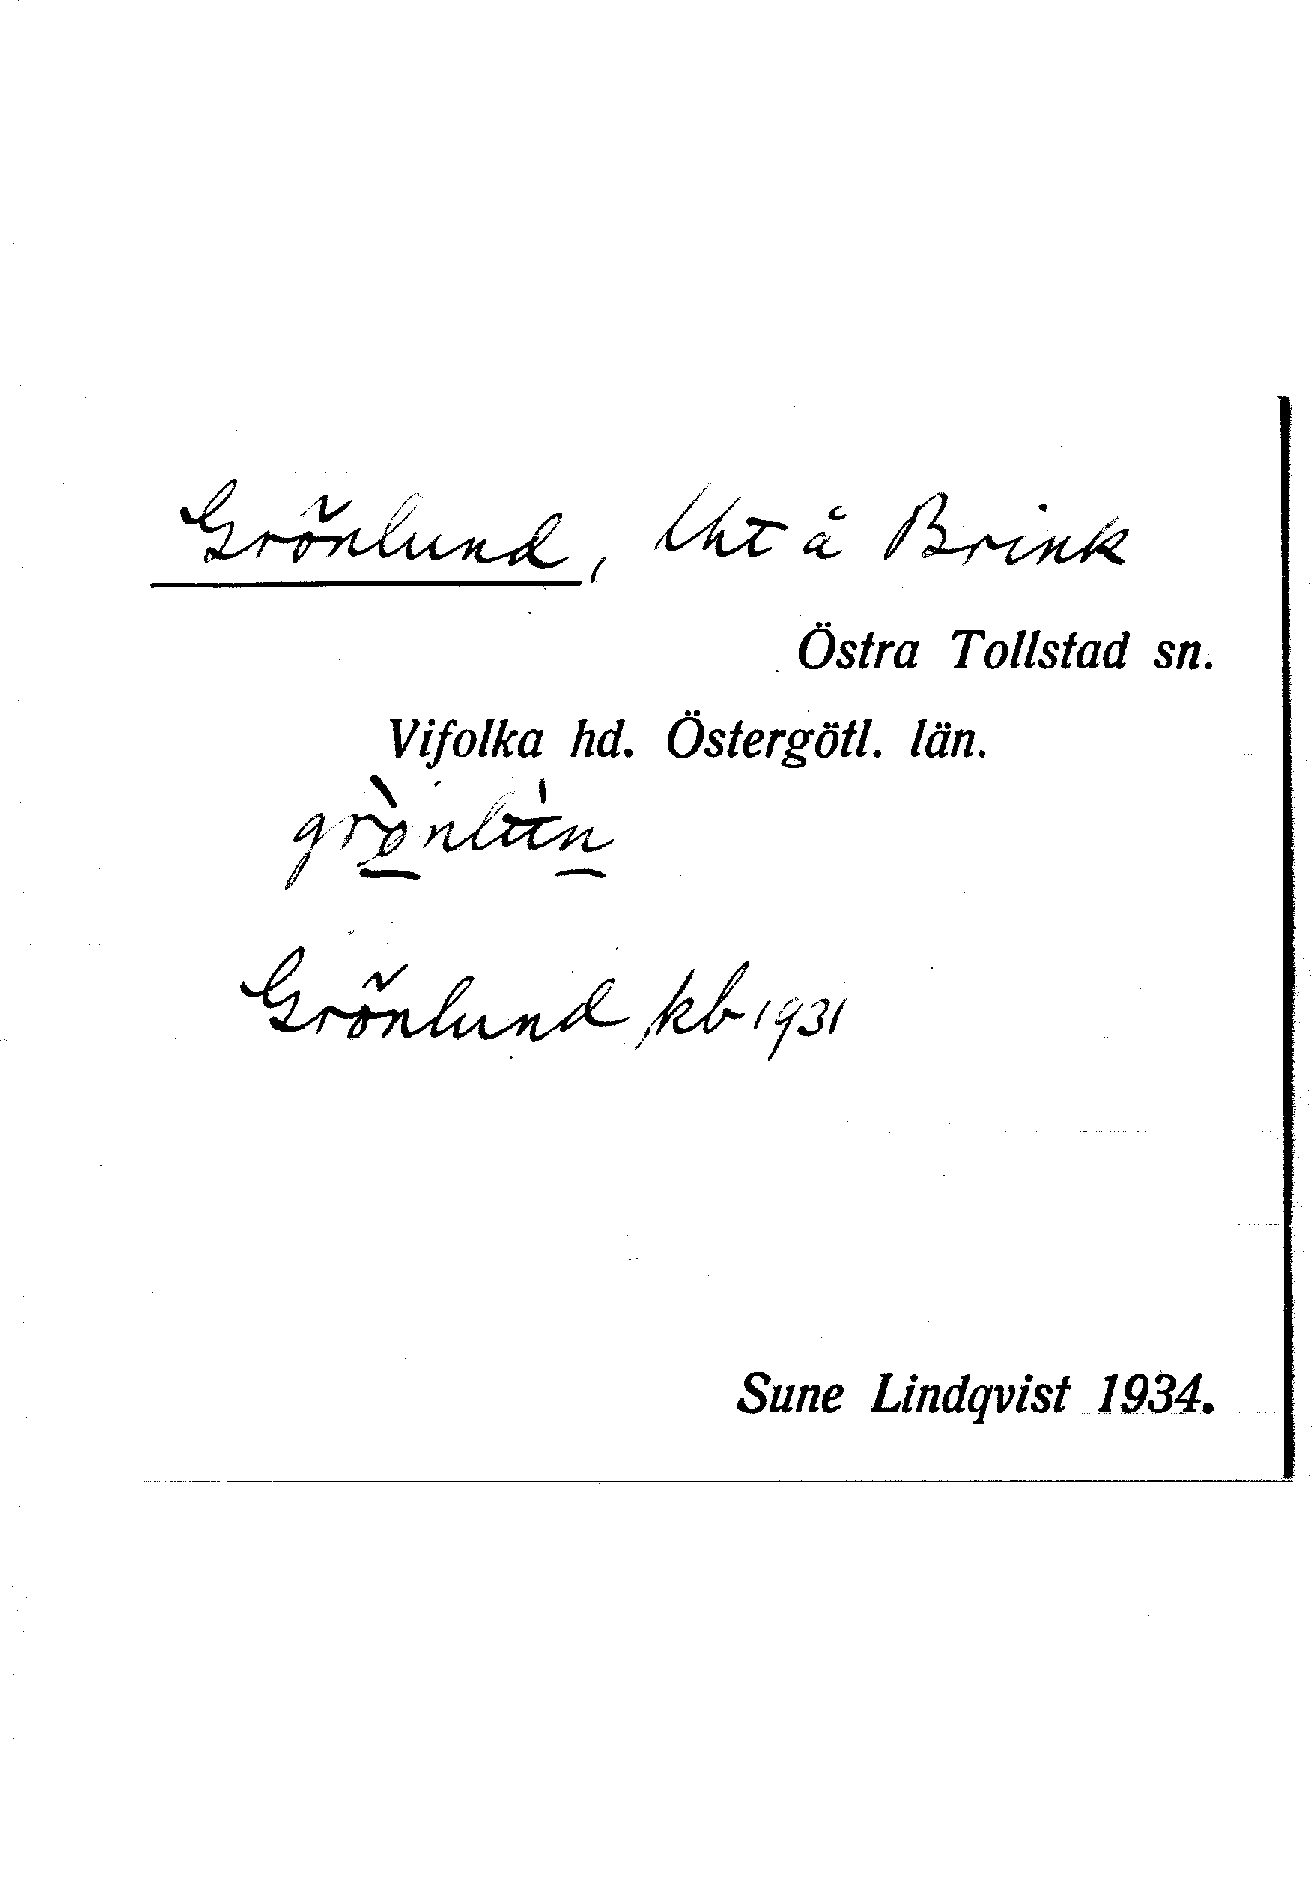 Grönlund, lht å Brink
Östra Tollstad sn.
Vifolka hd. Östergötl. län.
Grönlund kb 1931
Sune Lindqvist 1934.